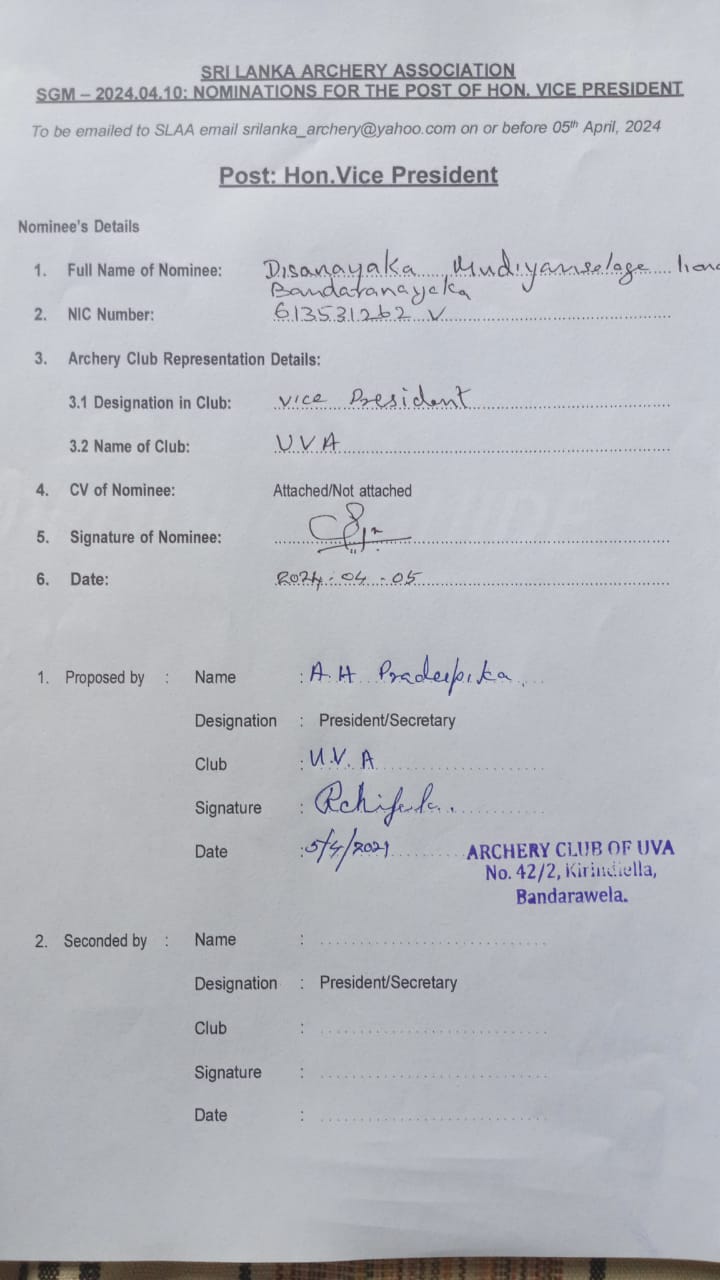 SRI LANKA ARCHERY ASSOCIATION
SGM – 2024.04.10: NOMINATIONS FOR THE POST OF HON. VICE PRESIDENT
To be emailed to SLAA email srilanka_archery@yahoo.com on or before 05th April, 2024
Post: Hon.Vice President
Nominee's Details
1. Full Name of Nominee: Disanayaka Mudiyanselage
Bandaranayaka
2. NIC Number: 613531262 V
3. Archery Club Representation Details:
3.1 Designation in Club: Vice President
3.2 Name of Club: UVA
4. CV of Nominee: Attached/Not attached
5. Signature of Nominee:
6. Date: 2024-04-05
1. Proposed by : Name : A.H Pradeepika
Designation : President/Secretary
Club : U.V.A
Signature :
Date : 5/4/2021
ARCHERY CLUB OF UVA
No. 42/2, Kirindiella,
Bandarawela.
2. Seconded by : Name :
Designation : President/Secretary
Club :
Signature :
Date :